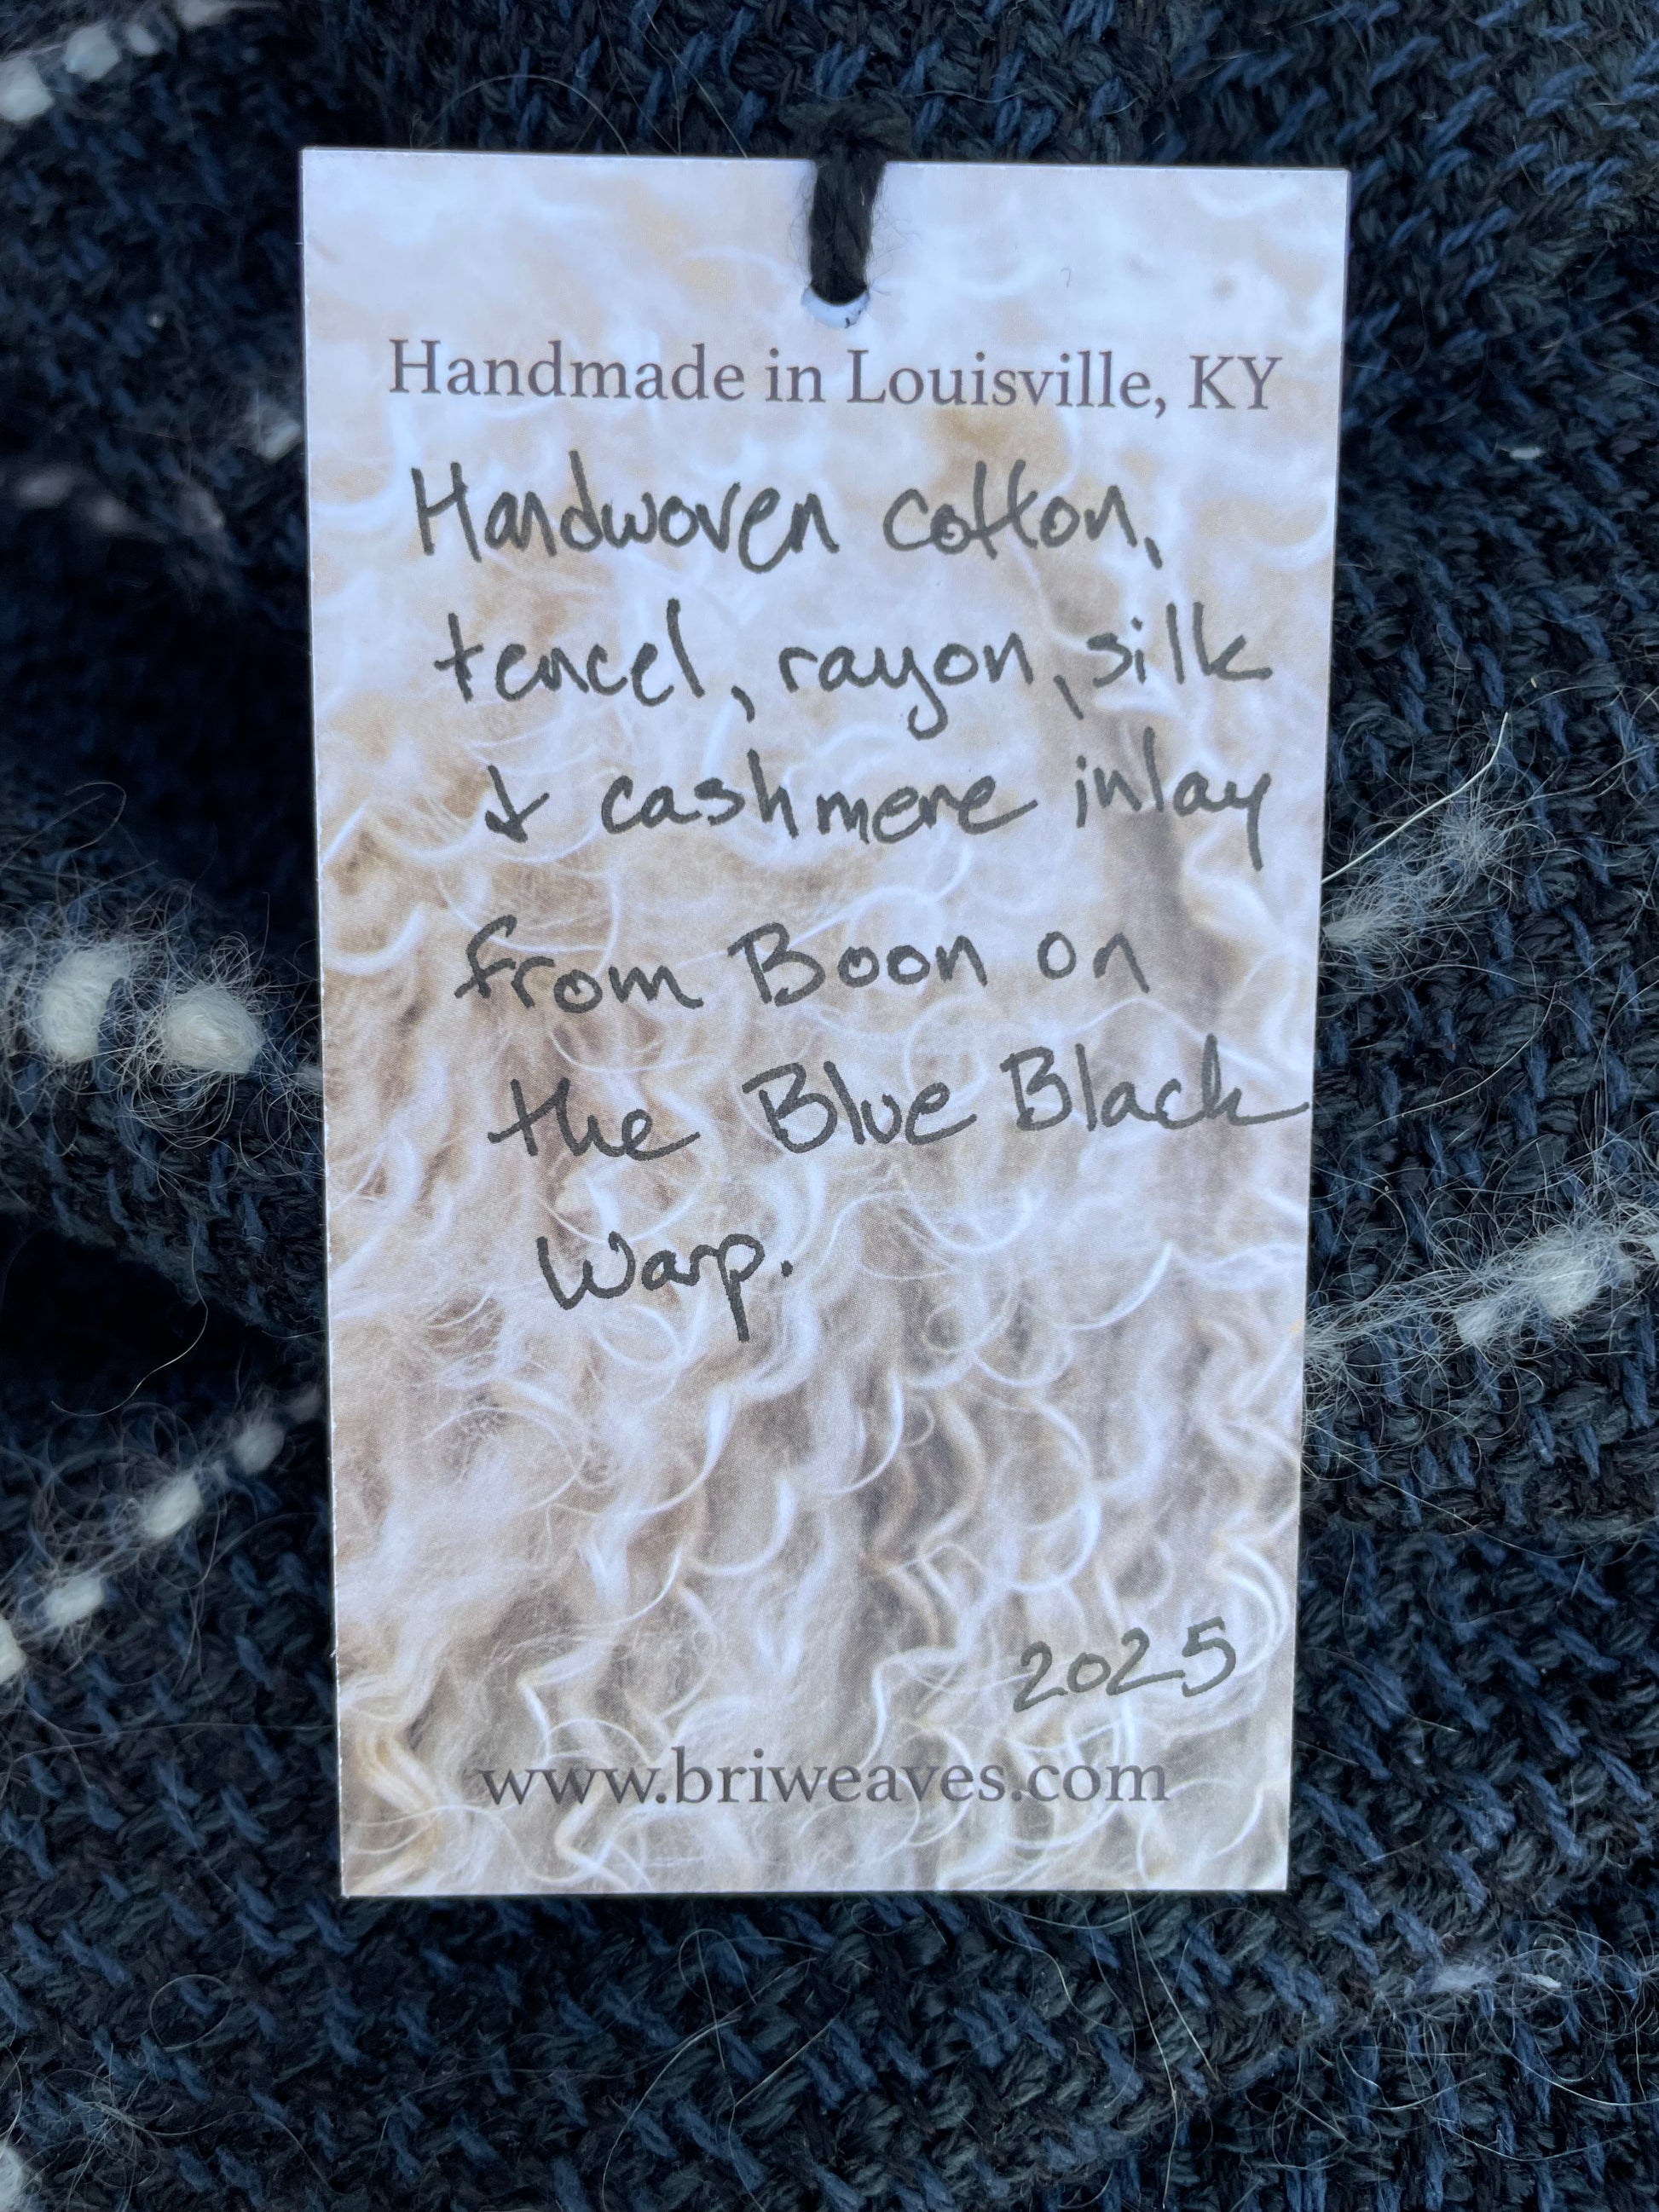 Handmade in Louisville, KY
Handwoven cotton,
tencel, rayon, silk
& cashmere inlay
from Boon on
the Blue Black
Warp.
2025
www.briweaves.com